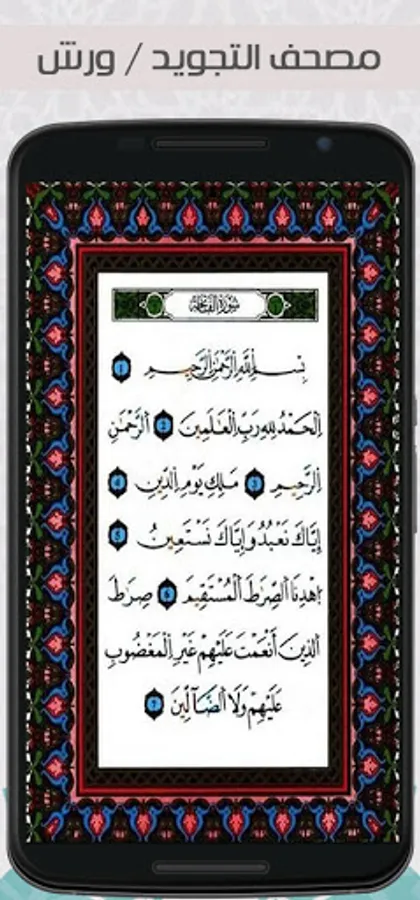 مصحف التجويد / ورش
سُورَةُ الفَاتِحَةِ
بِسْمِ اللَّهِ الرَّحْمَٰنِ الرَّحِيمِ 1
اِلْحَمْدُ لِلهِ رَبِّ الْعَٰلَمِينَ 2 اَلرَّحْمَٰنِ
اِلرَّحِيمِ 3 مَلِكِ يَوْمِ اِلدِّينِ 4
إِيَّاكَ نَعْبُدُ وَإِيَّاكَ نَسْتَعِينُ 5
اِهْدِنَا اَلصِّرَٰطَ اَلْمُسْتَقِيمَ 6 صِرَٰطَ
اَلذِينَ أَنْعَمْتَ عَلَيْهِمْ غَيْرِ اِلْمَغْضُوبِ
عَلَيْهِمْ وَلَا اَلضَّآلِّينَ 7